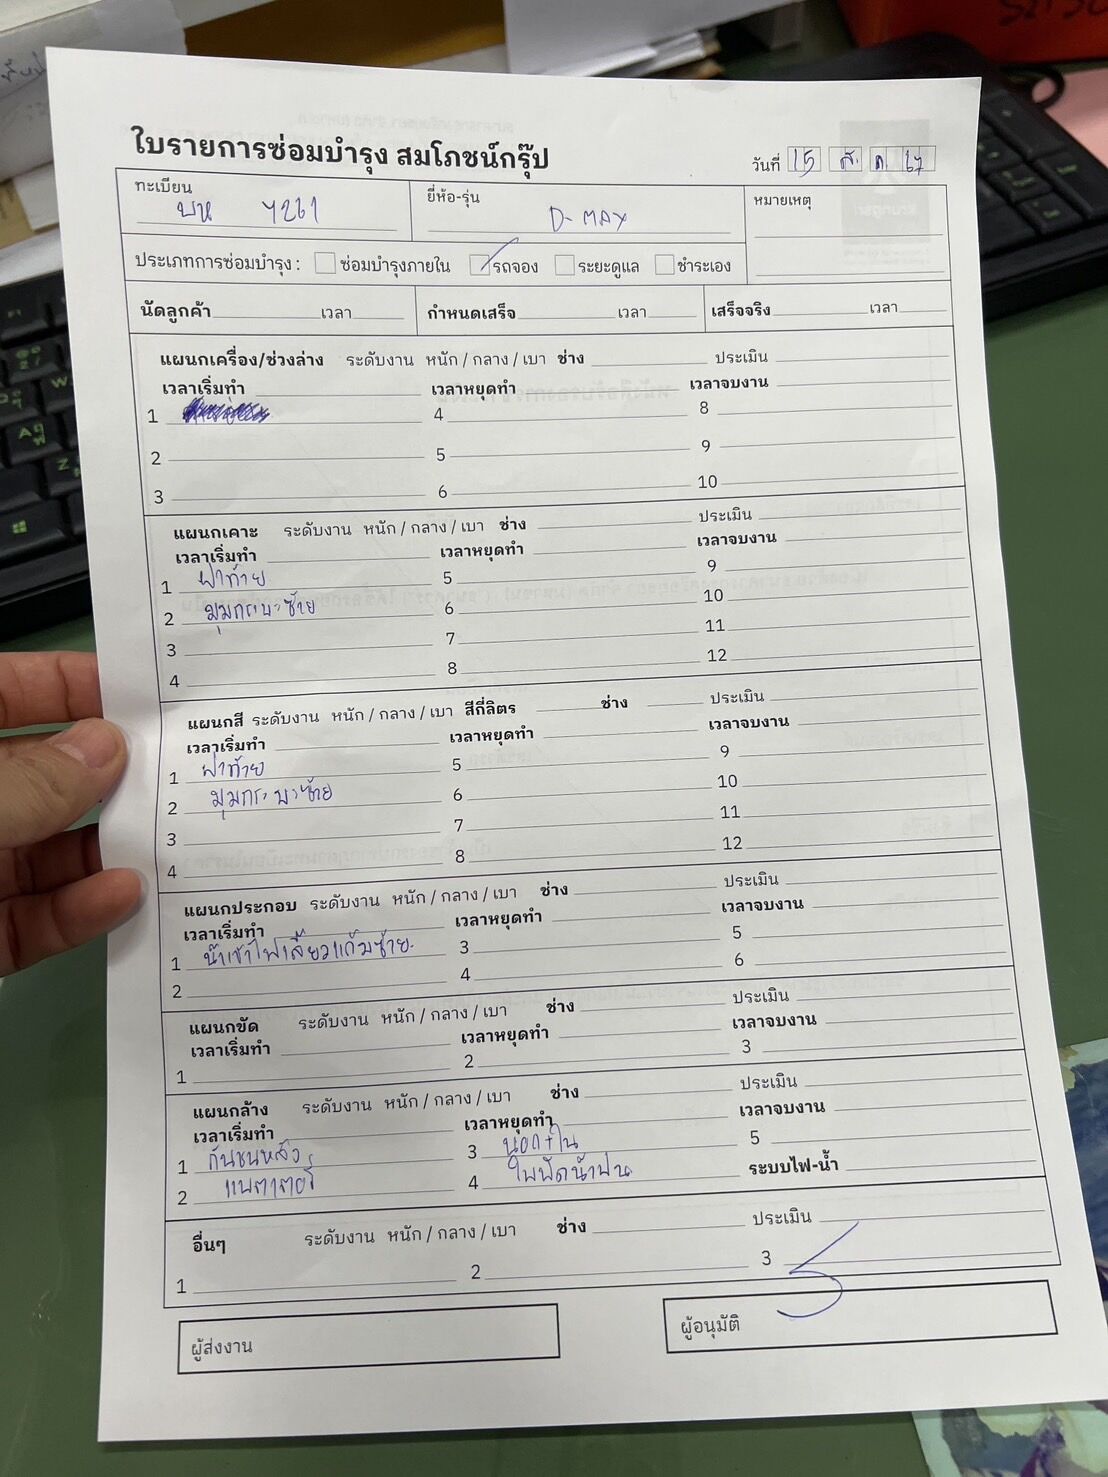 ใบรายการซ่อมบำรุง สมโภชน์กรุ๊ป
วันที่ 15 ส. ค. 67
ทะเบียน ยี่ห้อ-รุ่น หมายเหตุ
บห 7261 D-MAX
ประเภทการซ่อมบำรุง : ซ่อมบำรุงภายใน รถจอง ระยะดูแล ชำระเอง
นัดลูกค้า เวลา กำหนดเสร็จ เวลา เสร็จจริง เวลา
แผนกเครื่อง/ช่วงล่าง ระดับงาน หนัก / กลาง / เบา ช่าง ประเมิน
เวลาเริ่มทำ เวลาหยุดทำ เวลาจบงาน
1 4 8
2 5 9
3 6 10
แผนกเคาะ ระดับงาน หนัก / กลาง / เบา ช่าง ประเมิน
เวลาเริ่มทำ เวลาหยุดทำ เวลาจบงาน
1 ฝาท้าย 5 9
2 มุมกระบะซ้าย 6 10
3 7 11
4 8 12
แผนกสี ระดับงาน หนัก / กลาง / เบา สีกี่ลิตร ช่าง ประเมิน
เวลาเริ่มทำ เวลาหยุดทำ เวลาจบงาน
1 ฝาท้าย 5 9
2 มุมกระบะซ้าย 6 10
3 7 11
4 8 12
แผนกประกอบ ระดับงาน หนัก / กลาง / เบา ช่าง ประเมิน
เวลาเริ่มทำ เวลาหยุดทำ เวลาจบงาน
1 น้ำเข้าไฟเลี้ยวแก้มซ้าย 3 5
2 4 6
แผนกขัด ระดับงาน หนัก / กลาง / เบา ช่าง ประเมิน
เวลาเริ่มทำ เวลาหยุดทำ เวลาจบงาน
1 2 3
แผนกล้าง ระดับงาน หนัก / กลาง / เบา ช่าง ประเมิน
เวลาเริ่มทำ เวลาหยุดทำ เวลาจบงาน
1 กันชนหลัง 3 นอก+ใน 5
2 แบตเตอรี่ 4 ใบปัดน้ำฝน ระบบไฟ-น้ำ
อื่นๆ ระดับงาน หนัก / กลาง / เบา ช่าง ประเมิน
1 2 3
ผู้ส่งงาน ผู้อนุมัติ